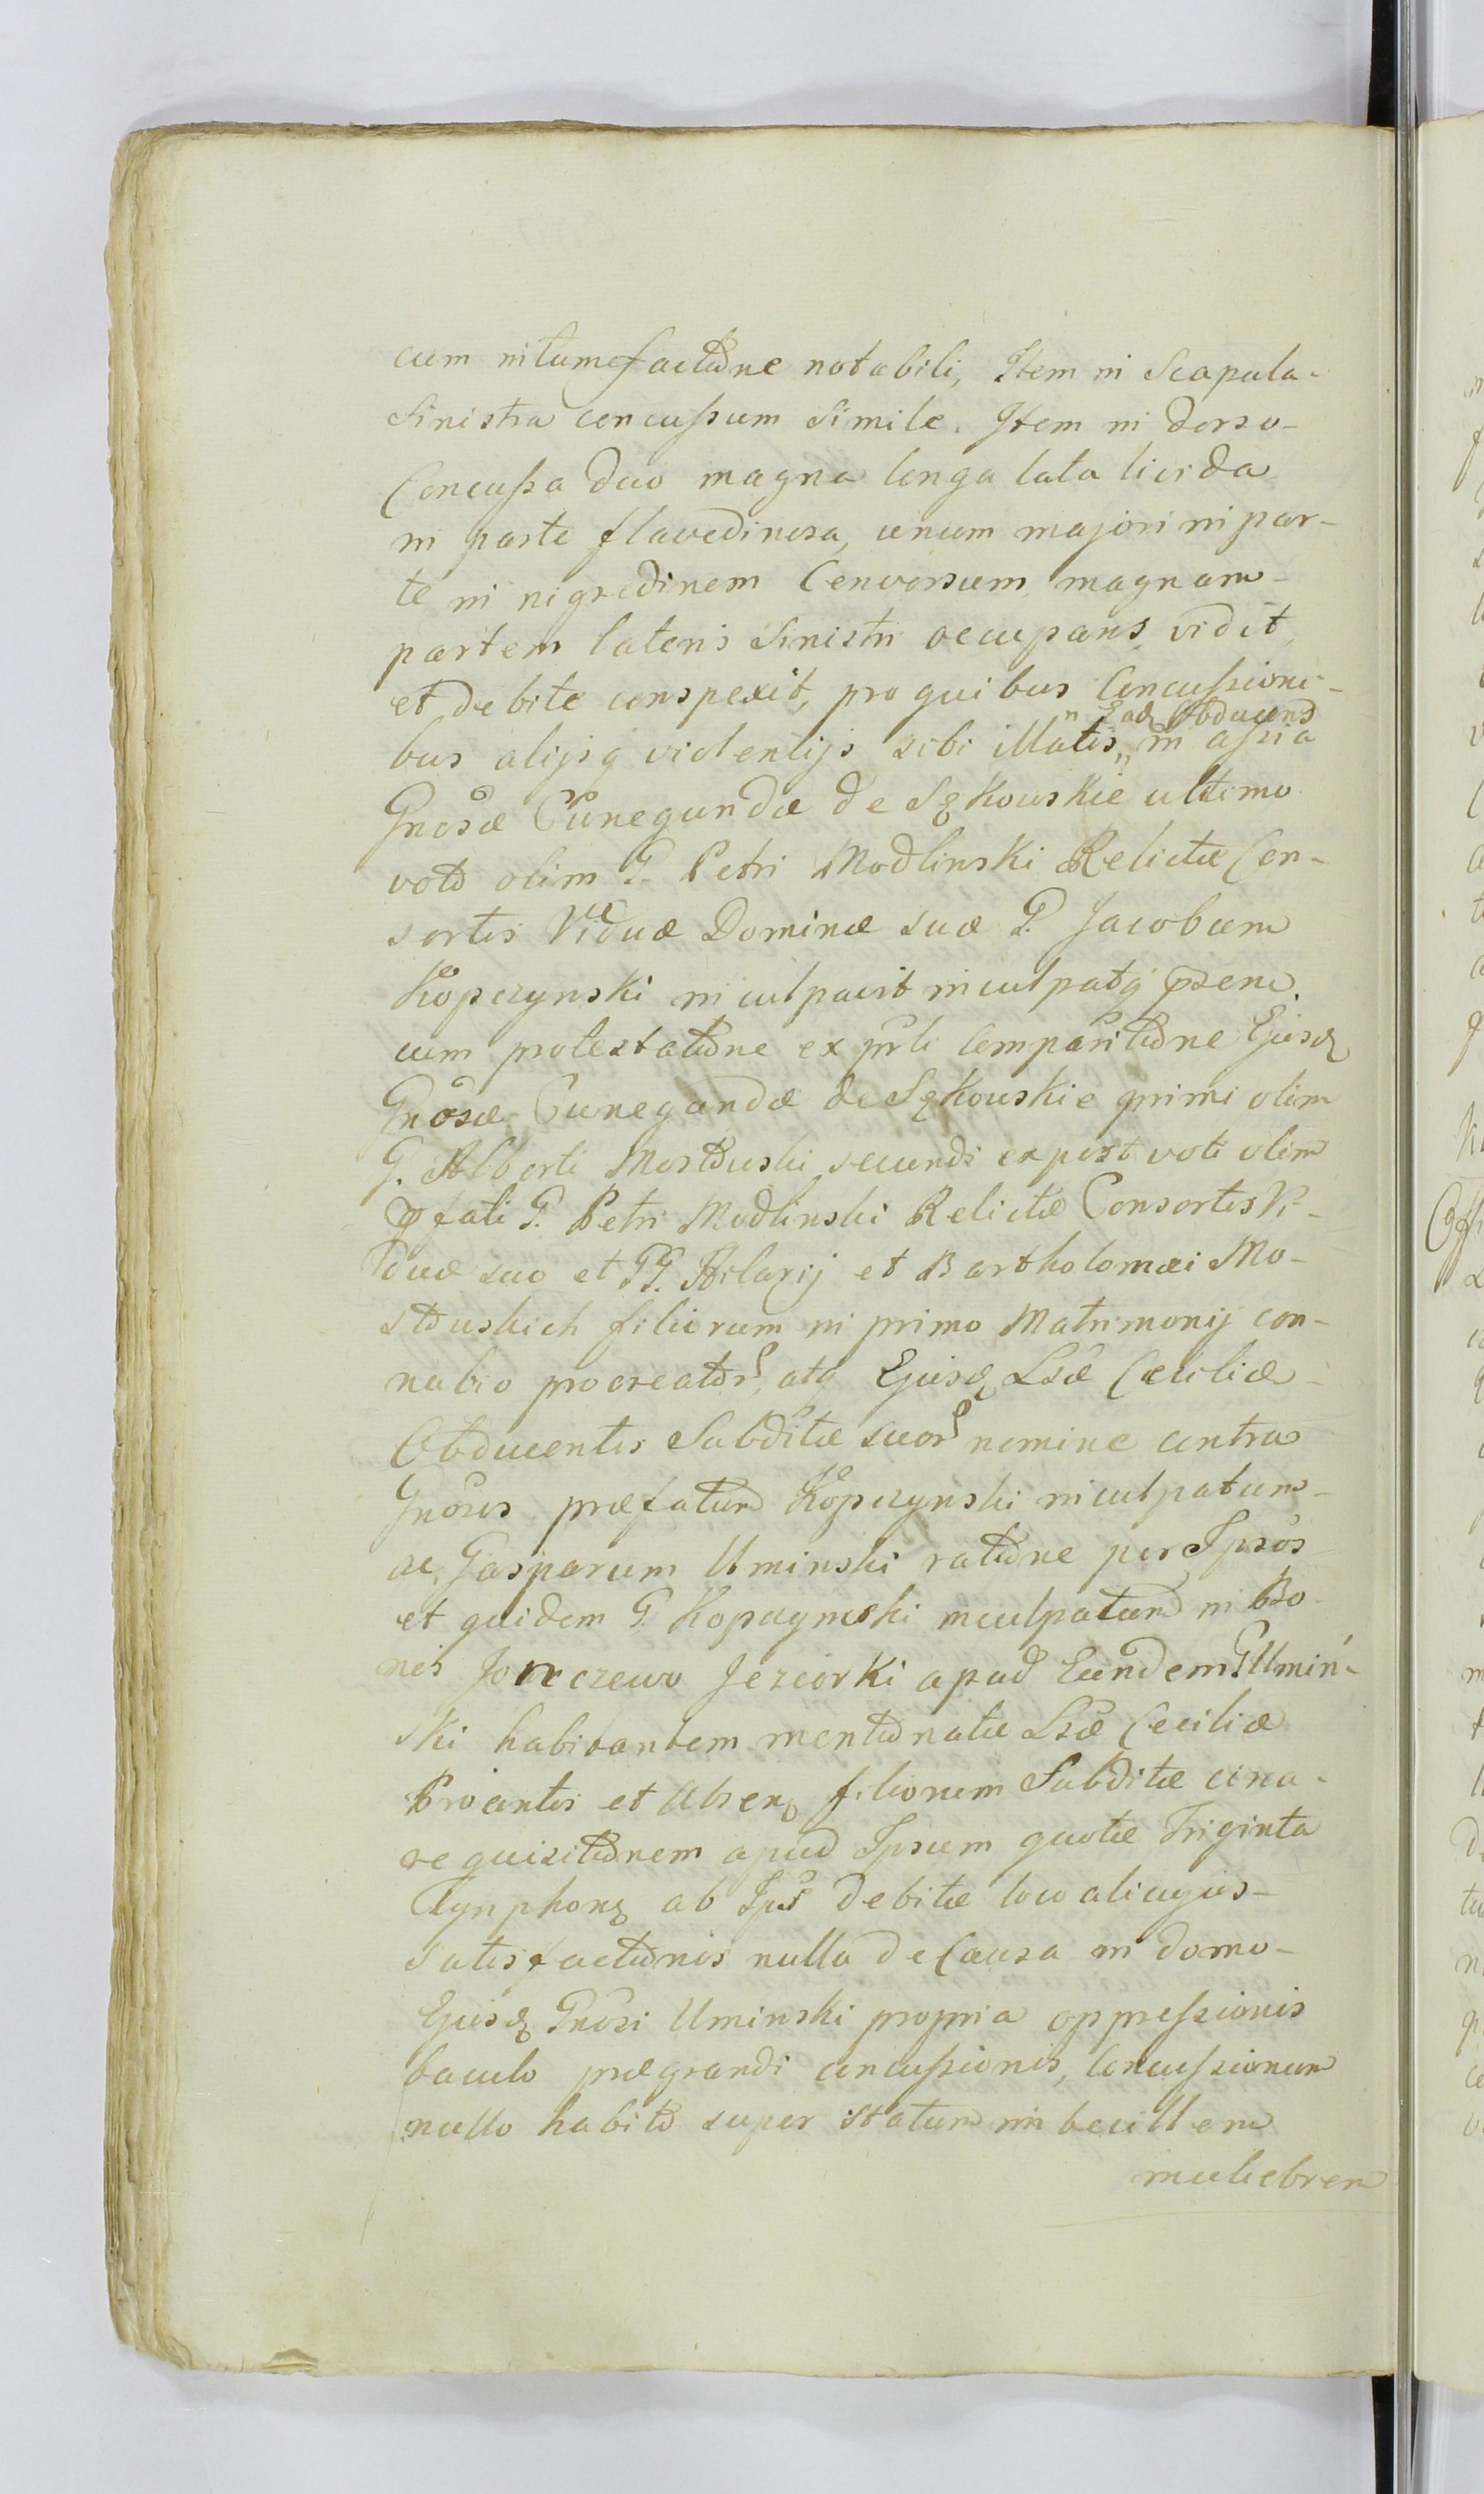 cum intumefactione notabili, Item in Scapula-
Sinistra concussum Simile. Item in dorso-
Concussa duo magna longa lata livida
in parte flavedinosa, unum majori in par-
te in nigredinem Conversum magnam-
partem lateris Sinistri occupans vidit,
et debite conspexit, pro quibus Concussioni-
" Ead Obducens
bus alijsq violentijs sibi illatis „ in assia
Gnosæ Cunegundæ de Sękowskie ultimo
voto olim G. Petri Modlinski Relictæ Con-
sortis Viduæ Dominæ suæ G. Jacobum
Kopczynski inculpavit inculpatq
cum protestatione ex prli comparitione Ejusd
Gnosæ Cunegundæ de Sękowskie primi olim
G. Alberti Mostowski secundi ex post voti olim
pfati G. Petri Modlinski Relictæ Consortis Vi-
duæ suo et GG. Hilarij et Bartholomæi Mo-
stowskich filiorum in primo Matrimonij con-
nubio procreator, atq Ejusd Lsæ Cæciliæ-
Obducentis Subditæ suor nomine contra
Gnosos præfatum Kopczynski inculpatum-
ac Gasparum Uminski ratione per Ipsos
et quidem G. Kopczynski inculpatum in Bo-
nis Jonczewo Jeziorki apud Eundem G Umiń-
ski habitantem mentionatæ Lsæ Ceciliæ
et Absen filiorum Subditæ circa-
requisitionem apud Ipsum quotæ Triginta
Tynphon ab Ips debitæ loco alicujus-
satisfactionis nulla de Causa in domo-
Ejusd Gnosi Uminski propria oppressionis
baculo prægrandi concussionis, Concussionum
nullo habito super statum imbecillem
muliebrem